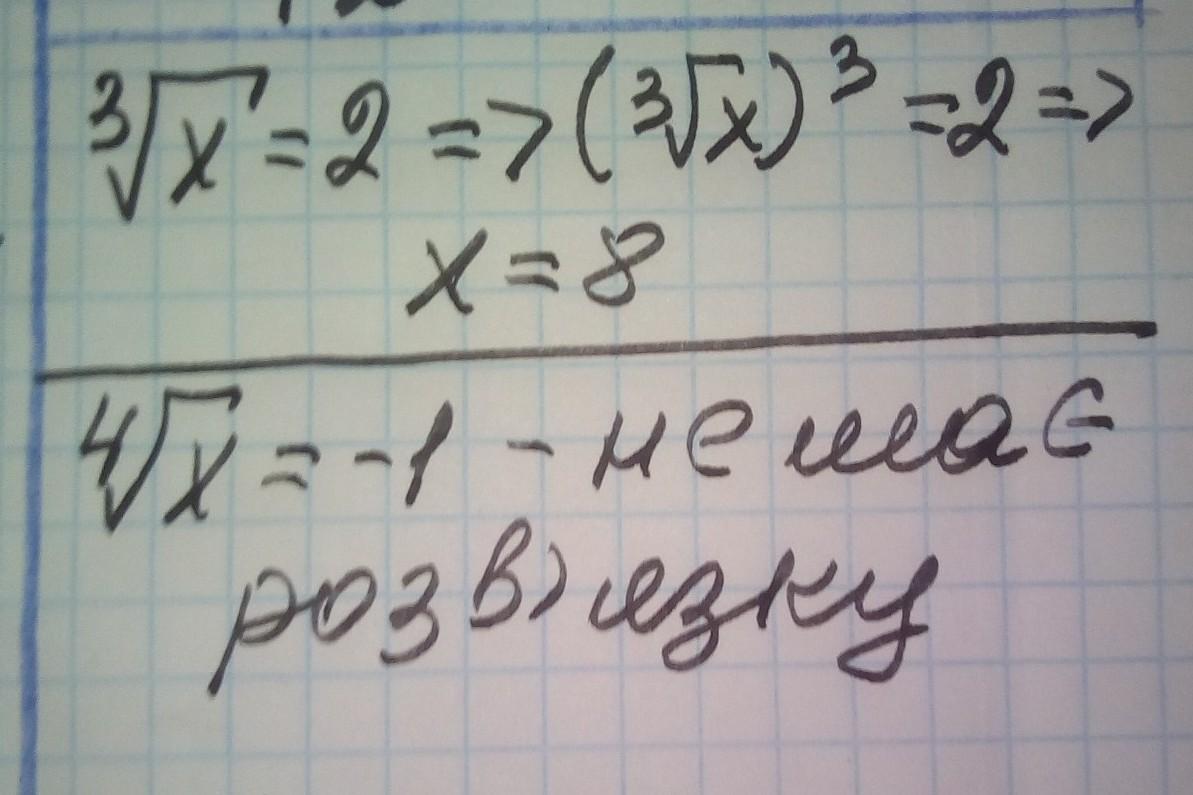 ∛x = 2 => (∛x)³ = 2 =>
x = 8
∜x = -1 - не має
розв'язку